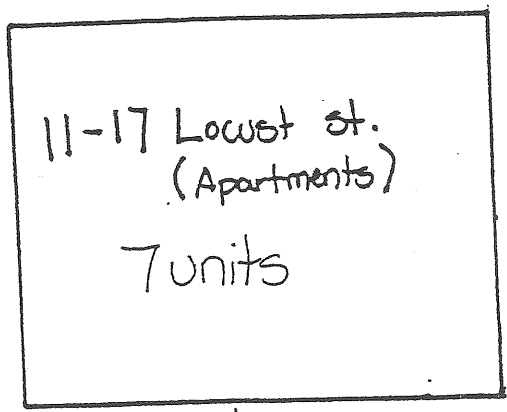 11-17 Locust st.
(Apartments)
7 units